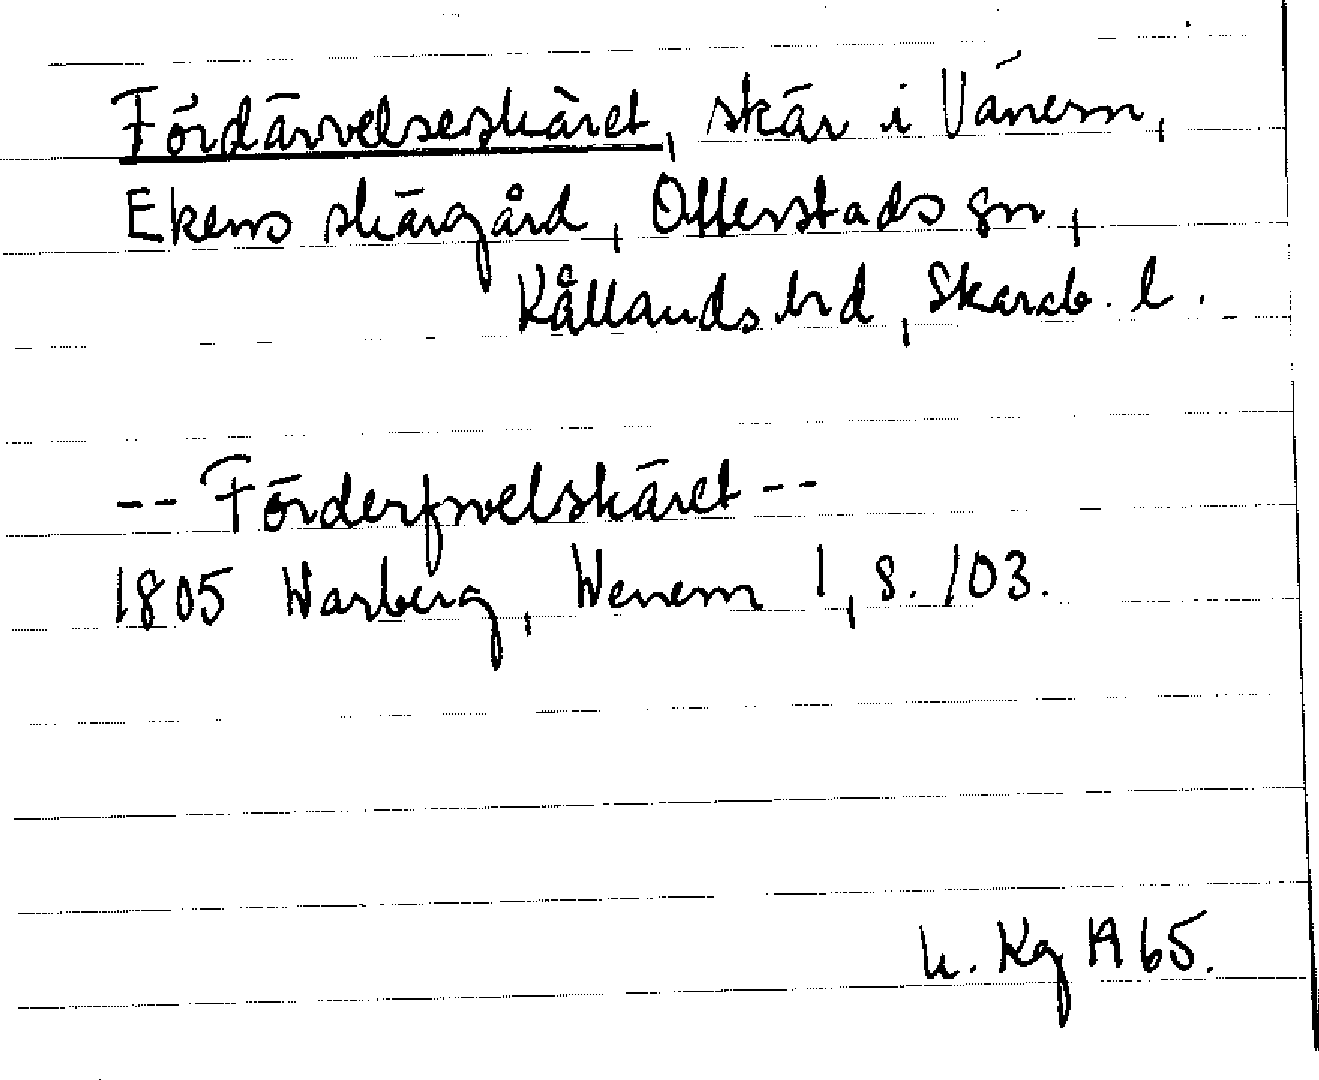 Fördärvelseskäret, skär i Vänern,
Ekens skärgård, Otterstads sn,
Kållands hd, Skarab. l.
-- Förderfvelskäret --
1805 Warberg, Wenern 1, s. 103.
h. Kg 1965.